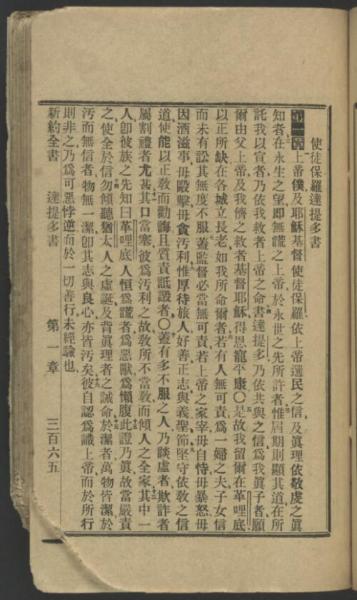 使徒保羅達提多書
第一章上帝僕及耶穌基督使徒保羅依上帝選民之信及眞理依敬虔之眞
知者在永生之望即無謊之上帝於永世之先所許者惟屆期則顯其道在所
託我以宣者乃依我救者上帝之命書達提多乃依共與之信爲我眞子者願
爾由父上帝及我儕之救者基督耶穌得恩寵平康〇是故我留爾在革哩底
以正所缺在各城立長老如我所命爾者若有人無可責爲一婦之夫子女信
而未有訟其無度不服蓋監督必當無可責若上帝之家宰毋自恃毋暴怒毋
因酒滋事毋毆擊毋貪汚利惟厚待旅人好善正志與義聖節堅守依敎之信
道使能以正敎而勸誨且質責詆譭者〇蓋有多不服之人乃談虛者欺詐者
屬割禮者尤甚其口當塞彼爲汚利之故敎所不當敎而傾人之全家其中一
人卽彼族之先知曰革哩底人恒爲謊者爲惡獸爲懶腹此證乃眞故當嚴責
之使全於信勿傾聽猶太人之虛誕及背眞理者之誡命於潔者萬物皆潔於
汚而無信者物無一潔卽其志與良心亦皆汚矣彼自認爲識上帝而於所行
則非之乃爲可惡悖逆而於一切善行未經驗也
新約全書　達提多書　第一章　三百六五